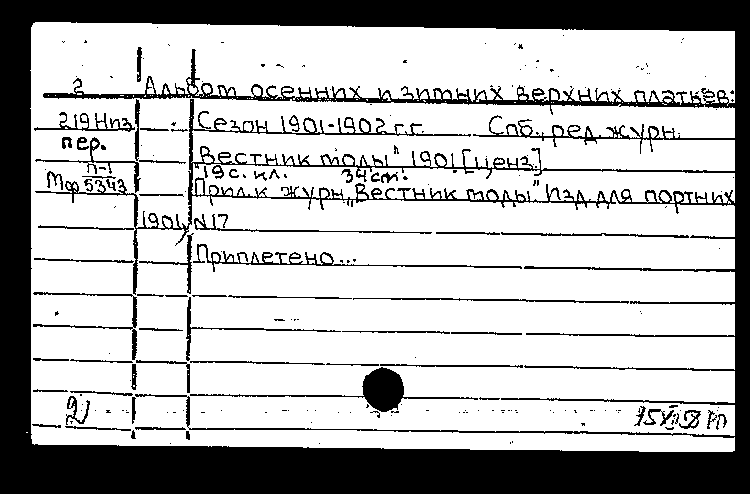 2 Альбом осенних и зимних верхних платьев:
219Нпз Сезон 1901-1902 г.г. Спб., ред. журн.
пер.
"Вестник моды" 1901. [ценз.]
п-1 19 с. ил. 34 см.
Мф 5343 Прил. к журн. „Вестник моды." Изд. для портних
1901, N17
Приплетено...
15 VII 58 РП